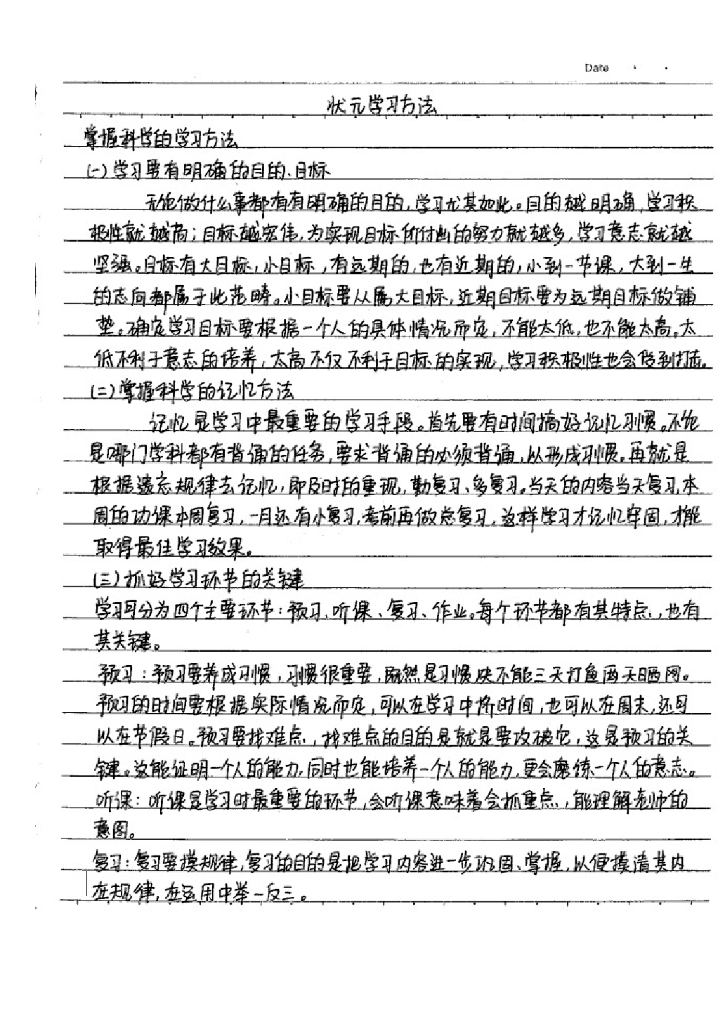 Date
状元学习方法
掌握科学的学习方法
(一)学习要有明确的目的、目标
无论做什么事都有有明确的目的,学习尤其如此。目的越明确,学习积
极性就越高;目标越宏伟,为实现目标所付出的努力就越多,学习意志就越
坚强。目标有大目标,小目标,有远期的,也有近期的,小到一节课,大到一生
的志向都属于此范畴。小目标要从属大目标,近期目标要为远期目标做铺
垫。确定学习目标要根据一个人的具体情况而定,不能太低,也不能太高。太
低不利于意志的培养,太高不仅不利于目标的实现,学习积极性也会受到打击。
(二)掌握科学的记忆方法
记忆是学习中最重要的学习手段。首先要有时间搞好记忆习惯。不论
是哪门学科都有背诵的任务,要求背诵的必须背诵,以形成习惯。再就是
根据遗忘规律去记忆,即及时的重现,勤复习、多复习。当天的内容当天复习,本
周的功课本周复习,一月还有小复习,考前再做总复习。这样学习才记忆牢固,才能
取得最佳学习效果。
(三)抓好学习环节的关键
学习可分为四个主要环节:预习、听课、复习、作业。每个环节都有其特点,也有
其关键。
预习:预习要养成习惯,习惯很重要,既然是习惯决不能三天打鱼两天晒网。
预习的时间要根据实际情况而定,可以在学习中挤时间,也可以在周末,还可
以在节假日。预习要找难点,找难点的目的是就是要攻破它,这是预习的关
键。这能证明一个人的能力,同时也能培养一个人的能力,更会磨炼一个人的意志。
听课:听课是学习时最重要的环节,会听课意味着会抓重点,能理解老师的
意图。
复习:复习要摸规律,复习的目的是把学习内容进一步巩固、掌握,以便摸清其内
在规律,在运用中举一反三。